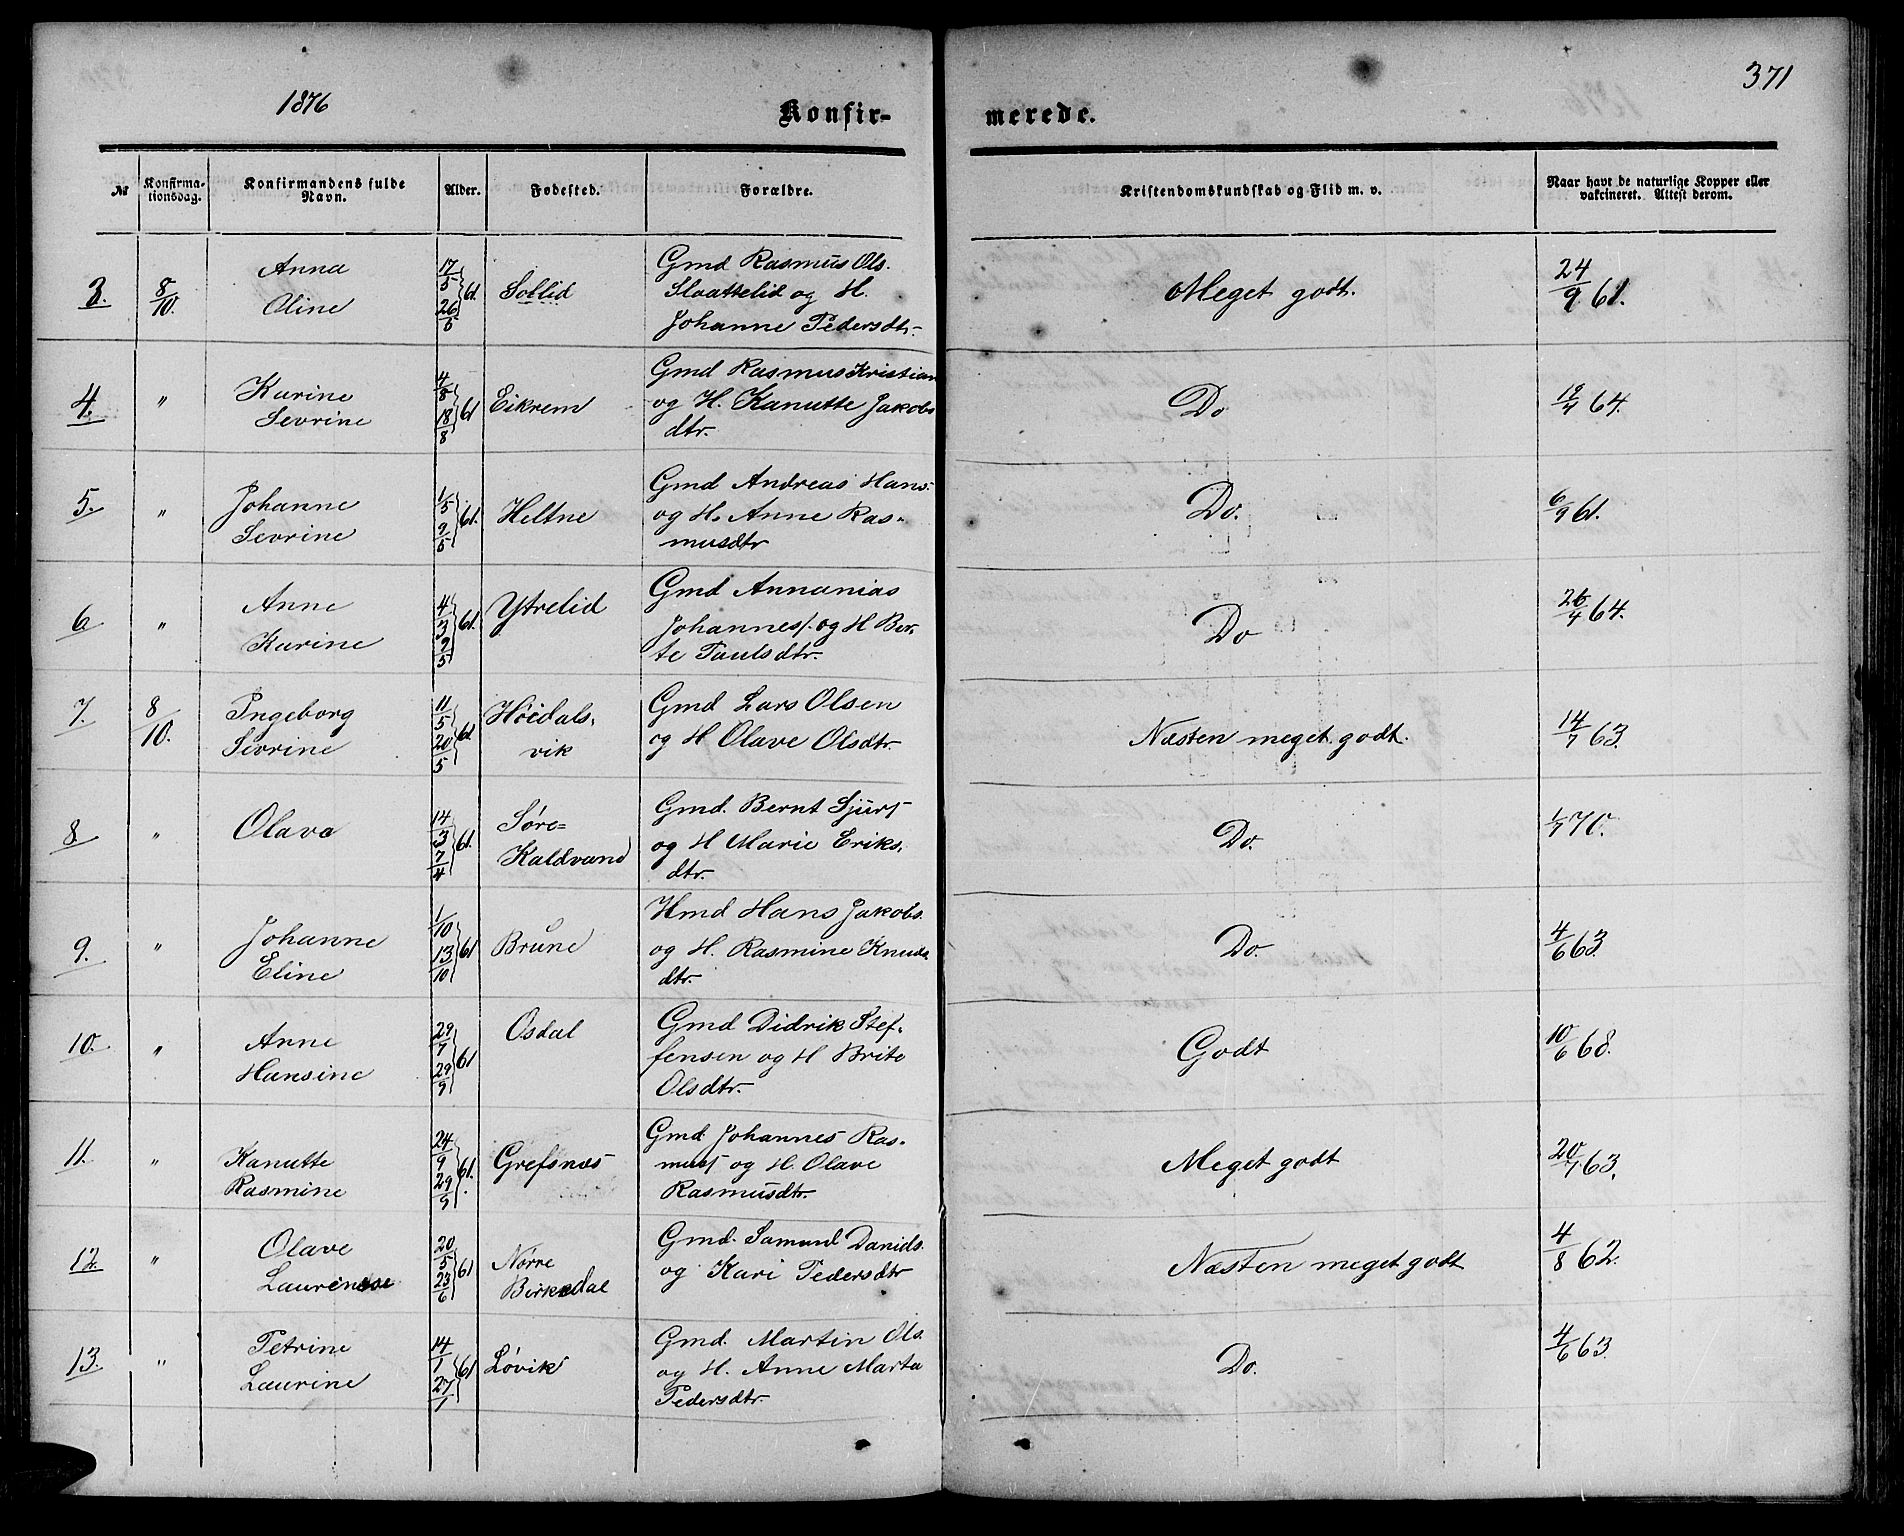 1876
Konfir-
merede.
371
№
Konfirma-
tionsdag.
Konfirmandens fulde
Navn.
Alder.
Fødested.
Forældre.
Kristendomskundskab og Flid m. v.
Naar havt de naturlige Kopper eller
vakcineret. Attest derom.
3. 8/10. Anna Oline 17/5 26/5 } 61. Sollid
Gmd Rasmus Ols.
Slaattelid og H.
Johanne Pedersdtr.
Meget godt. 24/9 61.
4. " Karine Sevrine 4/8 18/8 } 61 Eikrem
Gmd Rasmus Kristian
og H. Kanutte Jakobs
dtr.
Do 12/7 64.
5. " Johanne Sevrine 1/5 9/5 } 61. Heltne
Gmd Andreas Hans-
og H. Anne Ras-
musdtr
Do. 6/9 61.
6 " Anne Karine 4/3 9/5 } 61. Ytrelid
Gmd Annanias
Johannes. og H Ber-
te Paulsdtr.
Do 26/4 64.
7. 8/10. Ingeborg Sevrine 11/5 20/5 } 61 Høidals-
vik
Gmd Lars Olsen
og H Olave Olsdtr.
Næsten meget godt. 14/7 63.
8 " Olava 14/3 7/4 } 61. Søre-
Kaldvand
Gmd. Bernt Sjurs
og H Marie Eriks-
dtr.
Do. 1/7 70.
9. " Johanne Eline 1/10 13/10 } 61 Brune
Hmd Hans Jakobs.
og H. Rasmine Knuds
dtr.
Do. 4/6 63.
10. " Anne Hansine 29/7 29/9 } 61 Osdal
Gmd Didrik Stef-
fensen og H Brite
Olsdtr.
Godt 10/6 68.
11. " Kanutte Rasmine 24/9 29/9 } 61. Grefsnæs
Gmd Johannes Ras-
mus og H. Olave
Rasmusdtr.
Meget godt 20/7 63.
12. " Olave 20/5 23/6 } 61 Nørre
Birkedal
Gmd. Samuel Daniels.
og Kari Pedersdtr
Næsten meget godt 4/8 62.
13. " Petrine Laurine 14/1 27/1 } 61 Løvik
Gmd. Martin Ols.
og H. Anne Marta
Pedersdtr.
Do. 4/6 63.